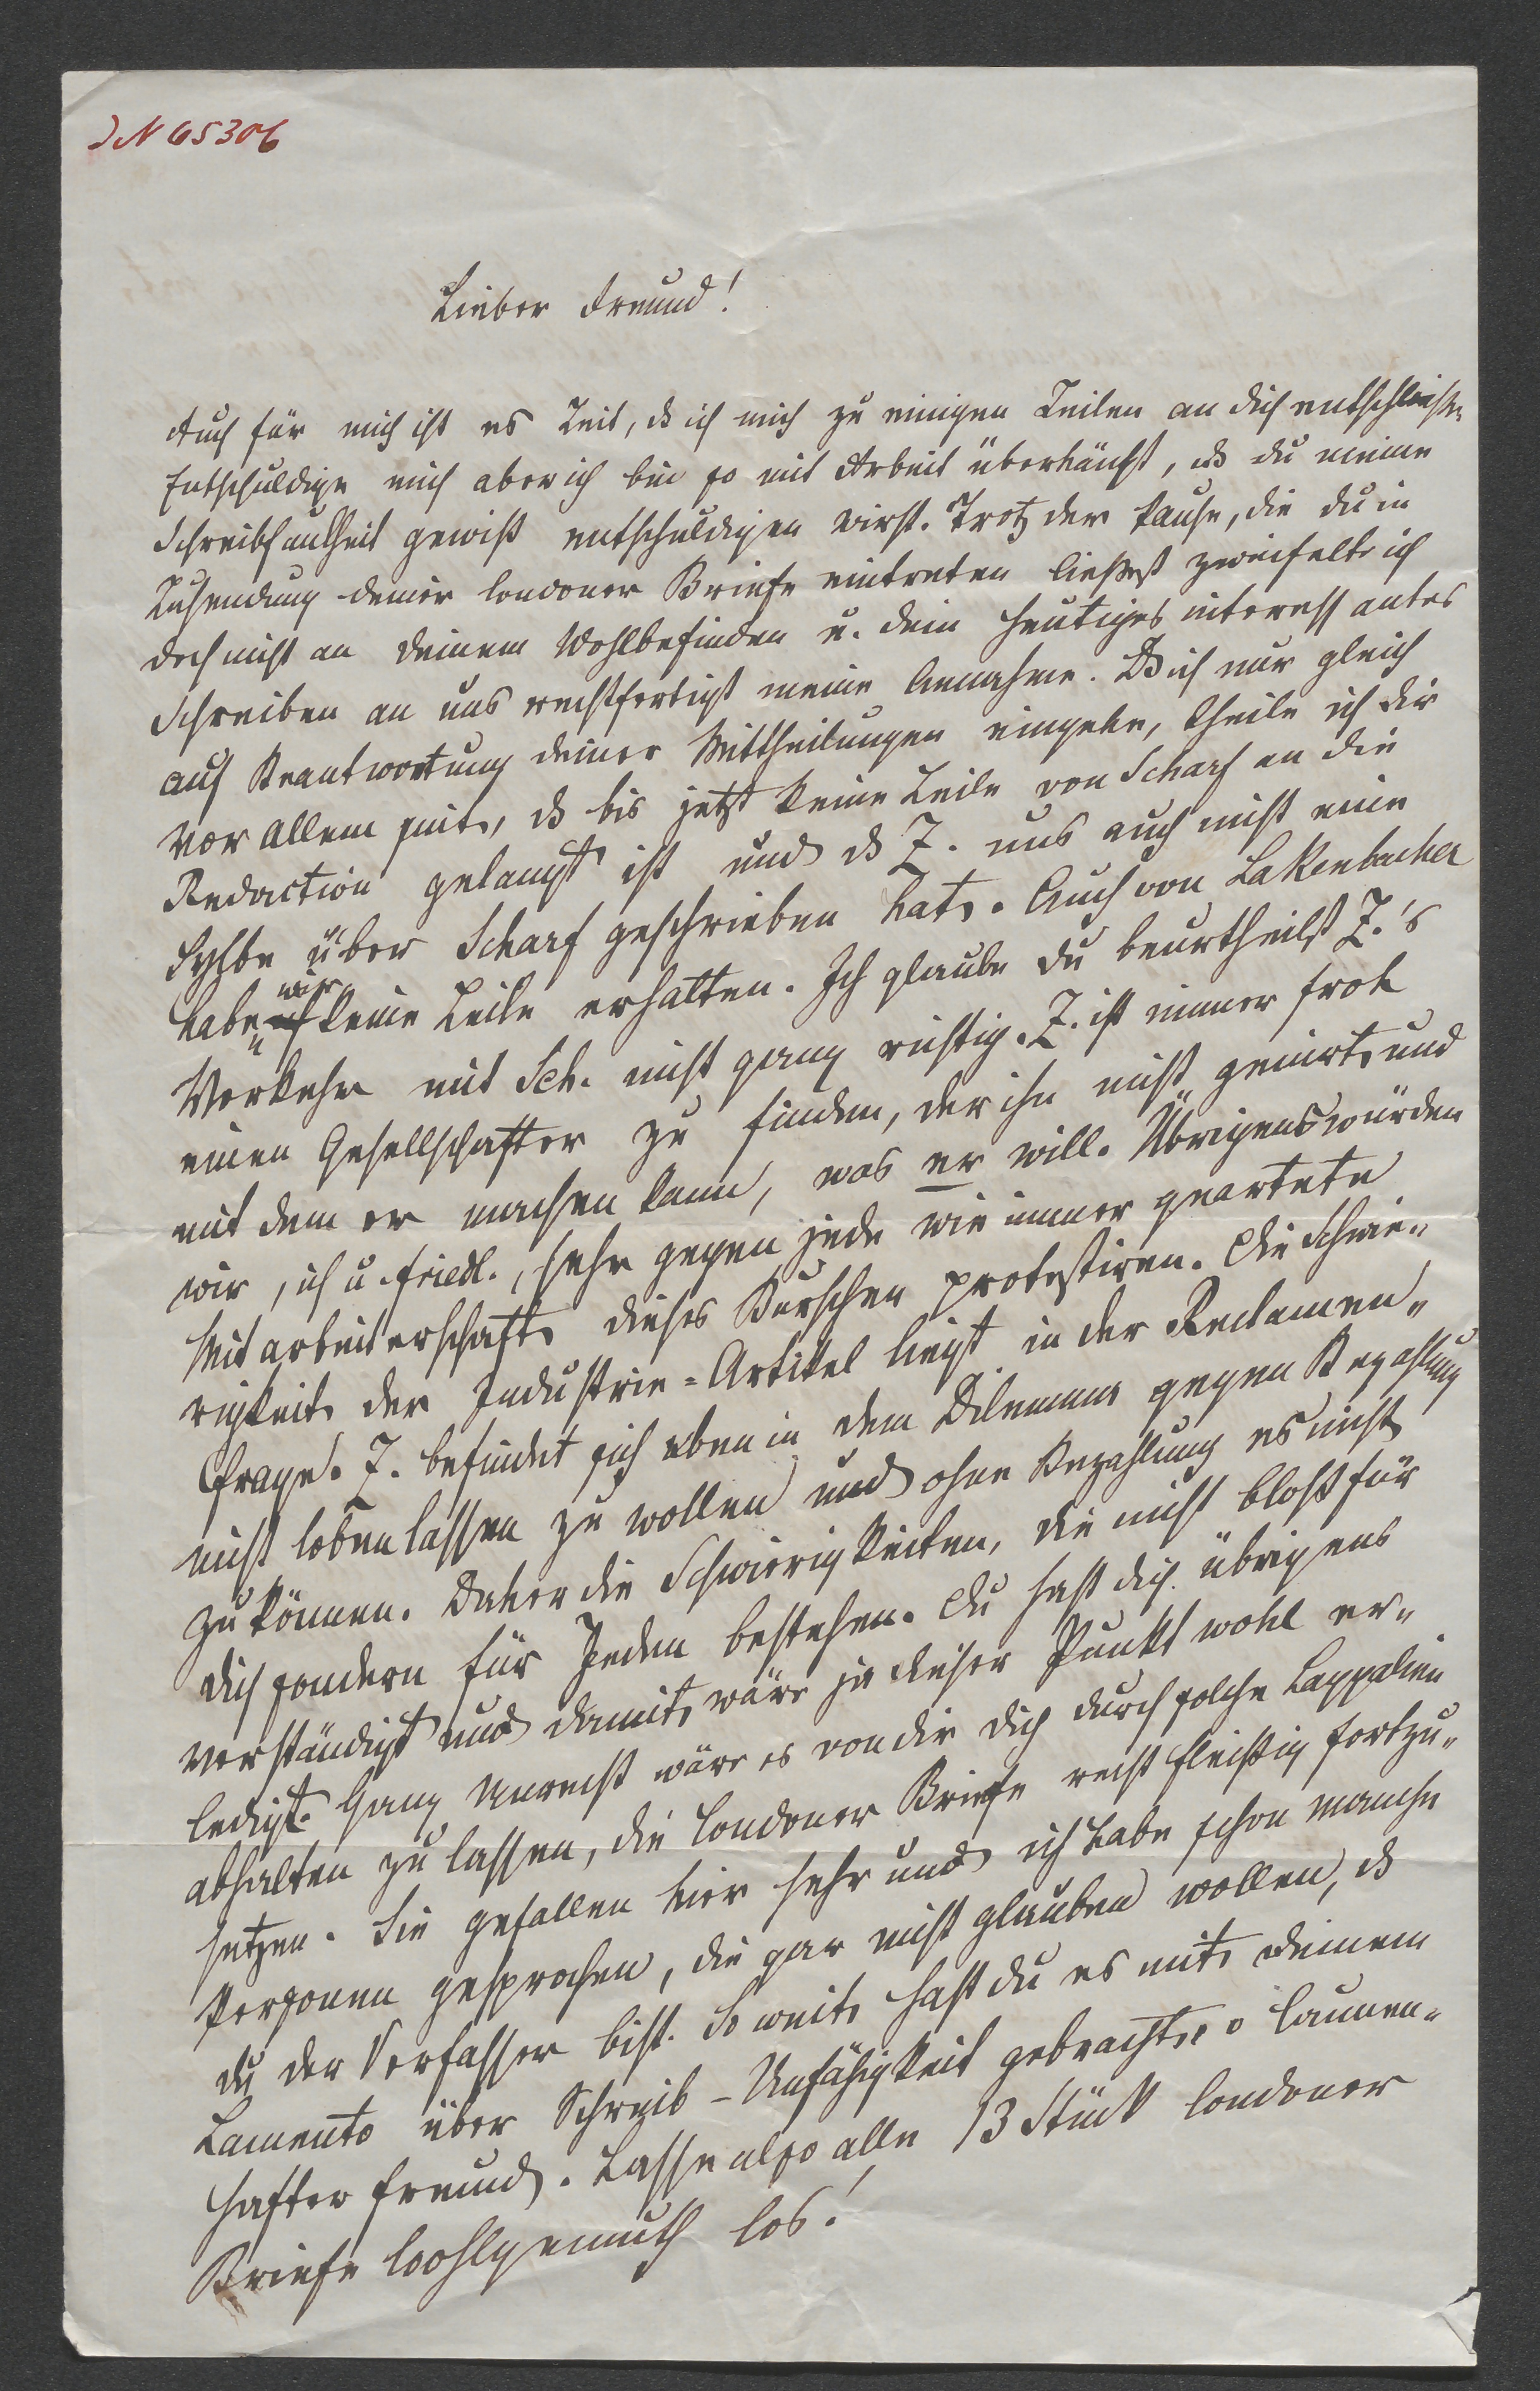 JN 65306
Lieber Freund!
Auch für mich ist es Zeit, ds ich mich zu einigen Zeilen an dich entschließe.
Entschuldige mich aber ich bin so mit Arbeit überhäuft, ds du meine
Schreibfaulheit gewiß entschuldigen wirst. Trotz der Pause, die du in
Zusendung deiner londoner Briefe eintreten ließest zweifelte ich
doch nicht an deinem Wohlbefinden u. dein heutiges interessantes
Schreiben an uns rechtfertigt meine Annahme. Ds ich nur gleich
auf Beantwortung deiner Mittheilungen eingehe, theile ich dir
vor allem mit, ds bis jetzt keine Zeile von Scharf an die
Redaction gelangt ist und ds Z. uns auch nicht eine
Sylbe über Scharf geschrieben hat. Auch von Lakenbacher
haben wir keine Zeile erhalten. Ich glaube du beurtheilst Z.'s
Verkehr mit Sch. nicht ganz richtig. Z. ist immer froh
einen Gesellschafter zu finden, der ihn nicht genirt und
mit dem er machen kann, was er will. Übrigens würden
wir, ich u. Friedl., sehr gegen jede wie immer geartete
Mitarbeiterschaft dieses Burschen protestiren. Die Schwie-
rigkeit der Industrie-Artikel liegt in der Reclamen-
frage. Z. befindet sich eben in dem Dilemma gegen Bezahlung
nicht loben lassen zu wollen und ohne Bezahlung es nicht
zu können. Daher die Schwierigkeiten, die nicht bloß für
dich sondern für Jeden bestehen. Du hast dich übrigens
verständigt und damit wäre ja dieser Punkt wohl er-
ledigt. Ganz Unrecht wäre es von dir dich durch solche Lappalien
abhalten zu lassen, die Londoner Briefe recht fleißig fortzu-
setzen. Sie gefallen hier sehr und ich habe schon manche
Personen gesprochen, die gar nicht glauben wollen, ds
du der Verfasser bist. So weit hast du es mit deinem
Lamento über Schreib-Unfähigkeit gebracht, o launen-
hafter Freund. Lasse also alle 13 Stück londoner
Briefe wohlgemuth los!